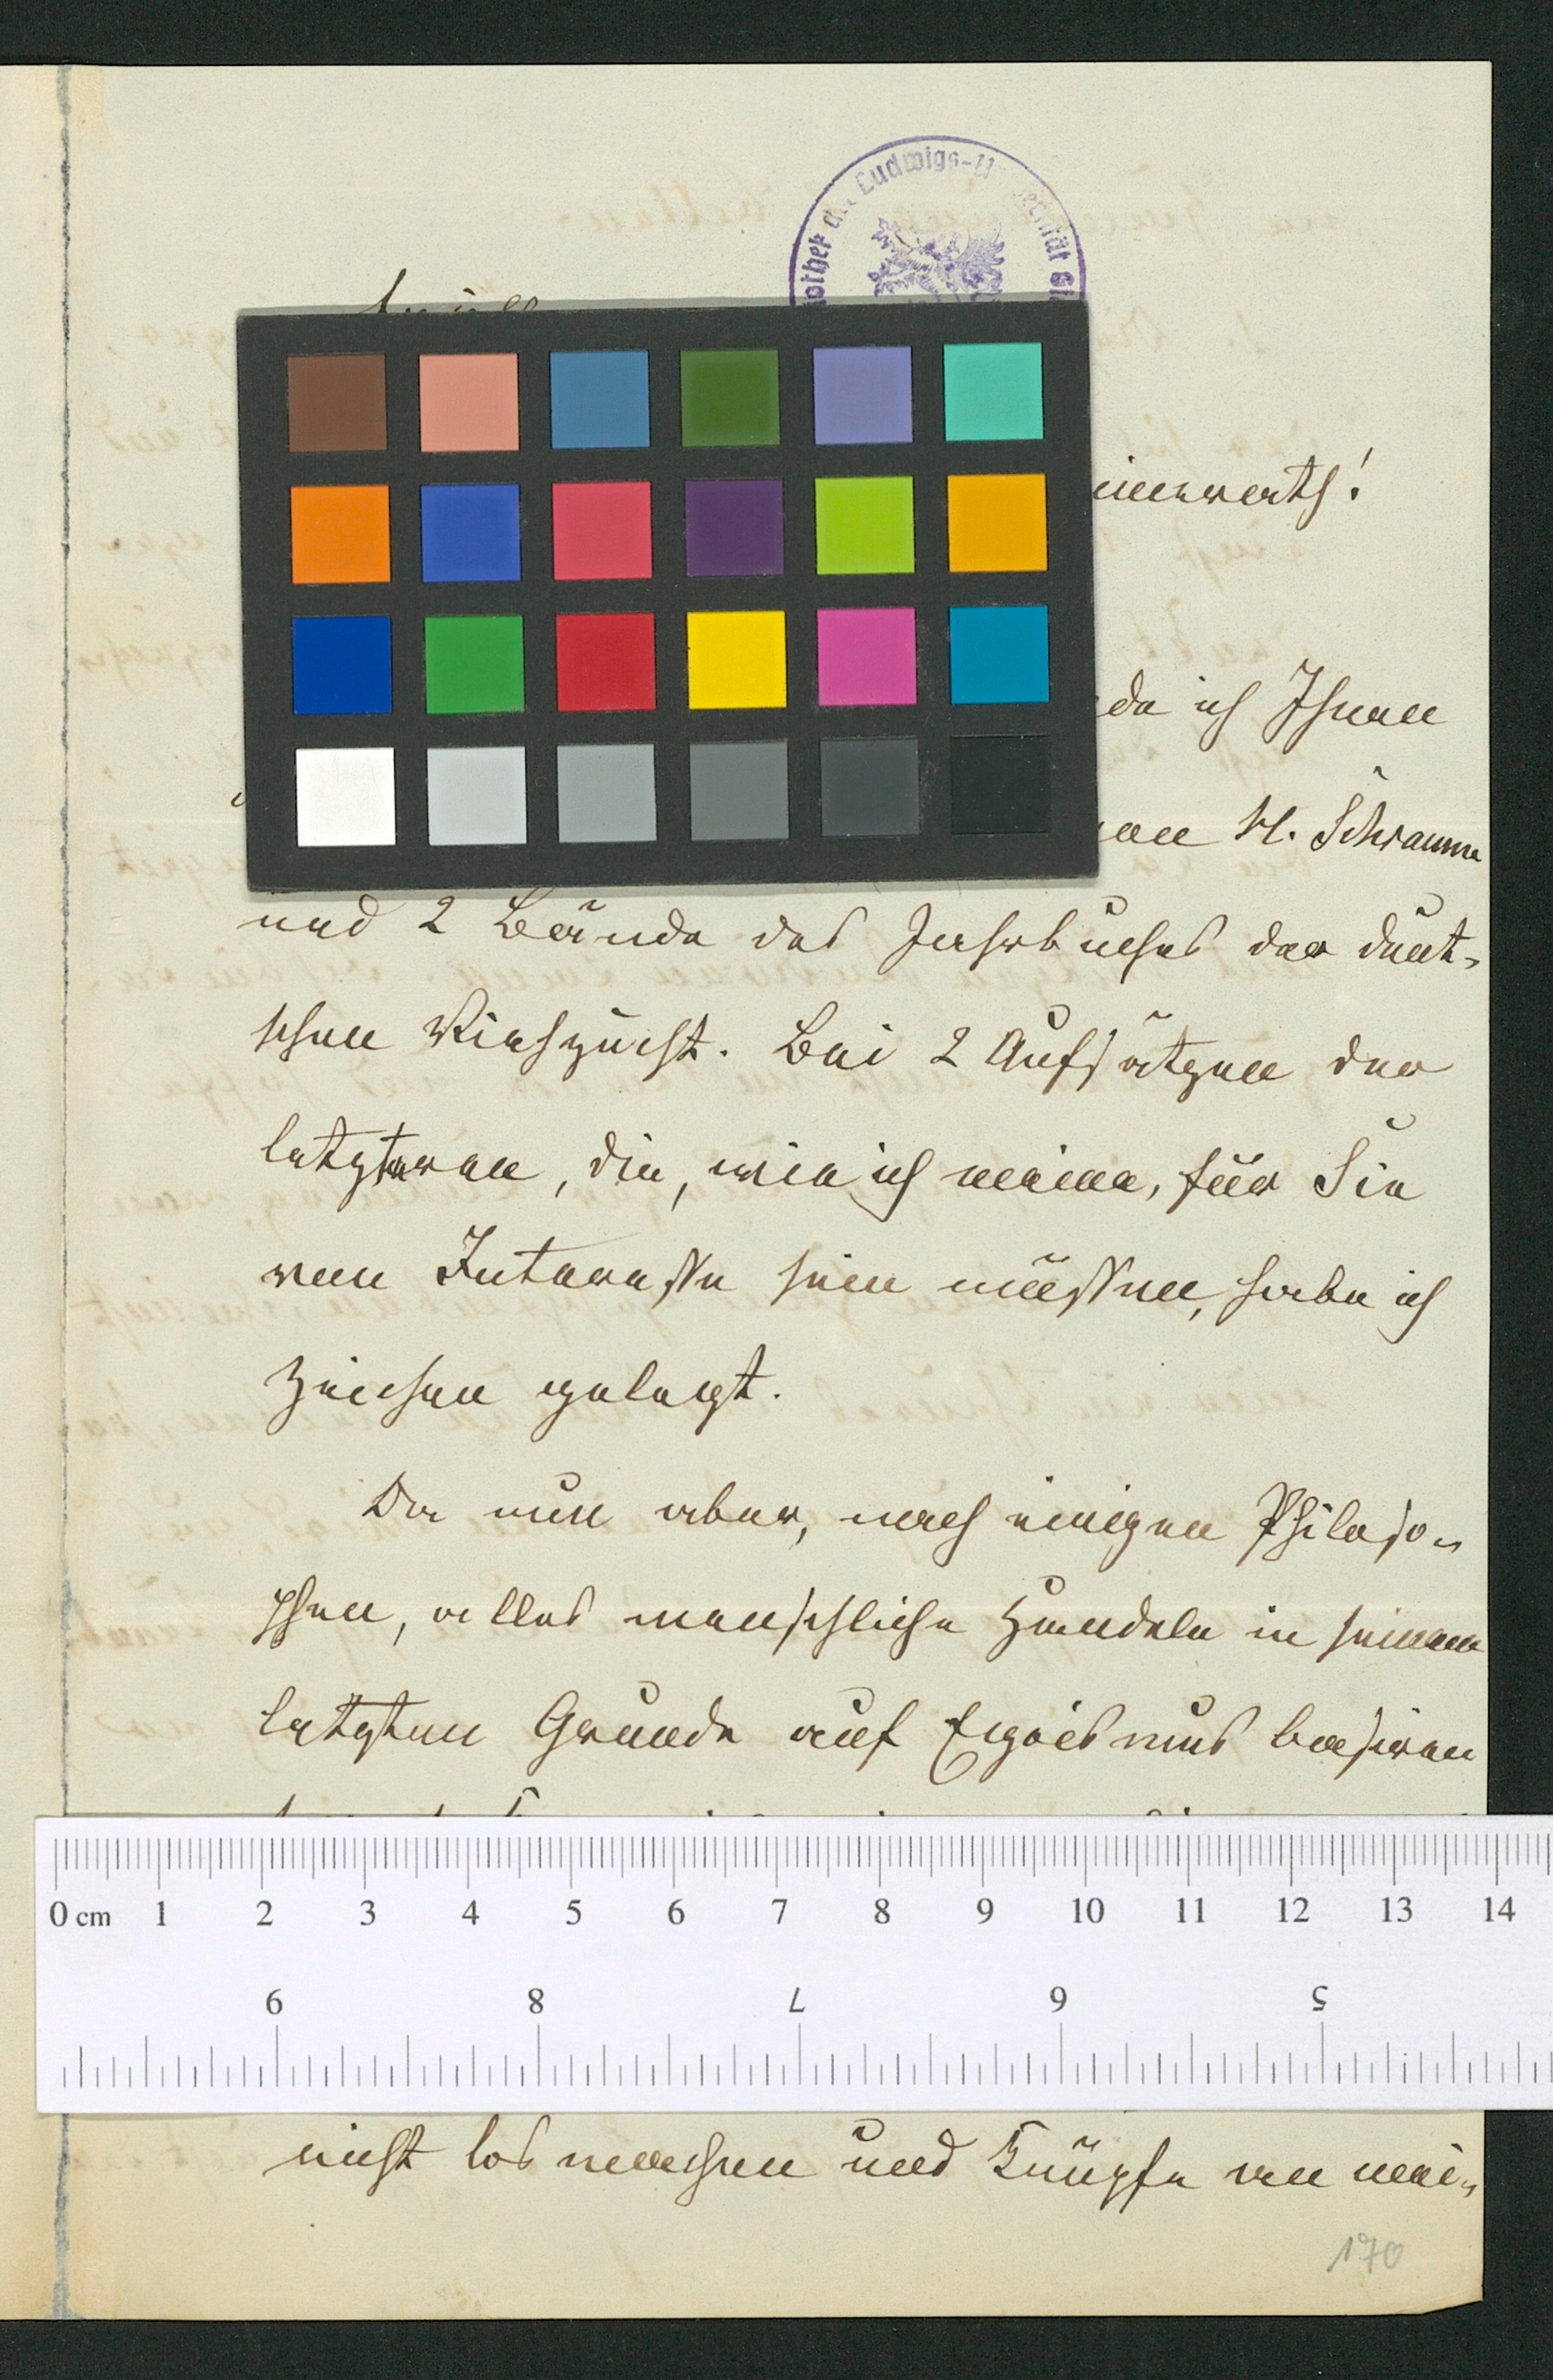 Ludwigs-U
imwerts!
da ich Ihnen
H. Schramm
und 2 Bände des Jahrbuches der deut-
schen Viehzucht. Bei 2 Aufsätzen der
letzteren, die, wie ich meine, für Sie
von Interesse sein müssen, habe ich
Zeichen gelegt.
Da nun aber, nach einigen Philoso-
phen, alles menschliche Handeln in seinem
letzten Grunde auf Egoismus basiren
0 cm 1 2 3 4 5 6 7 8 9 10 11 12 13 14
9 8 7 6 5
nicht los machen und knüpfe an mei-
170